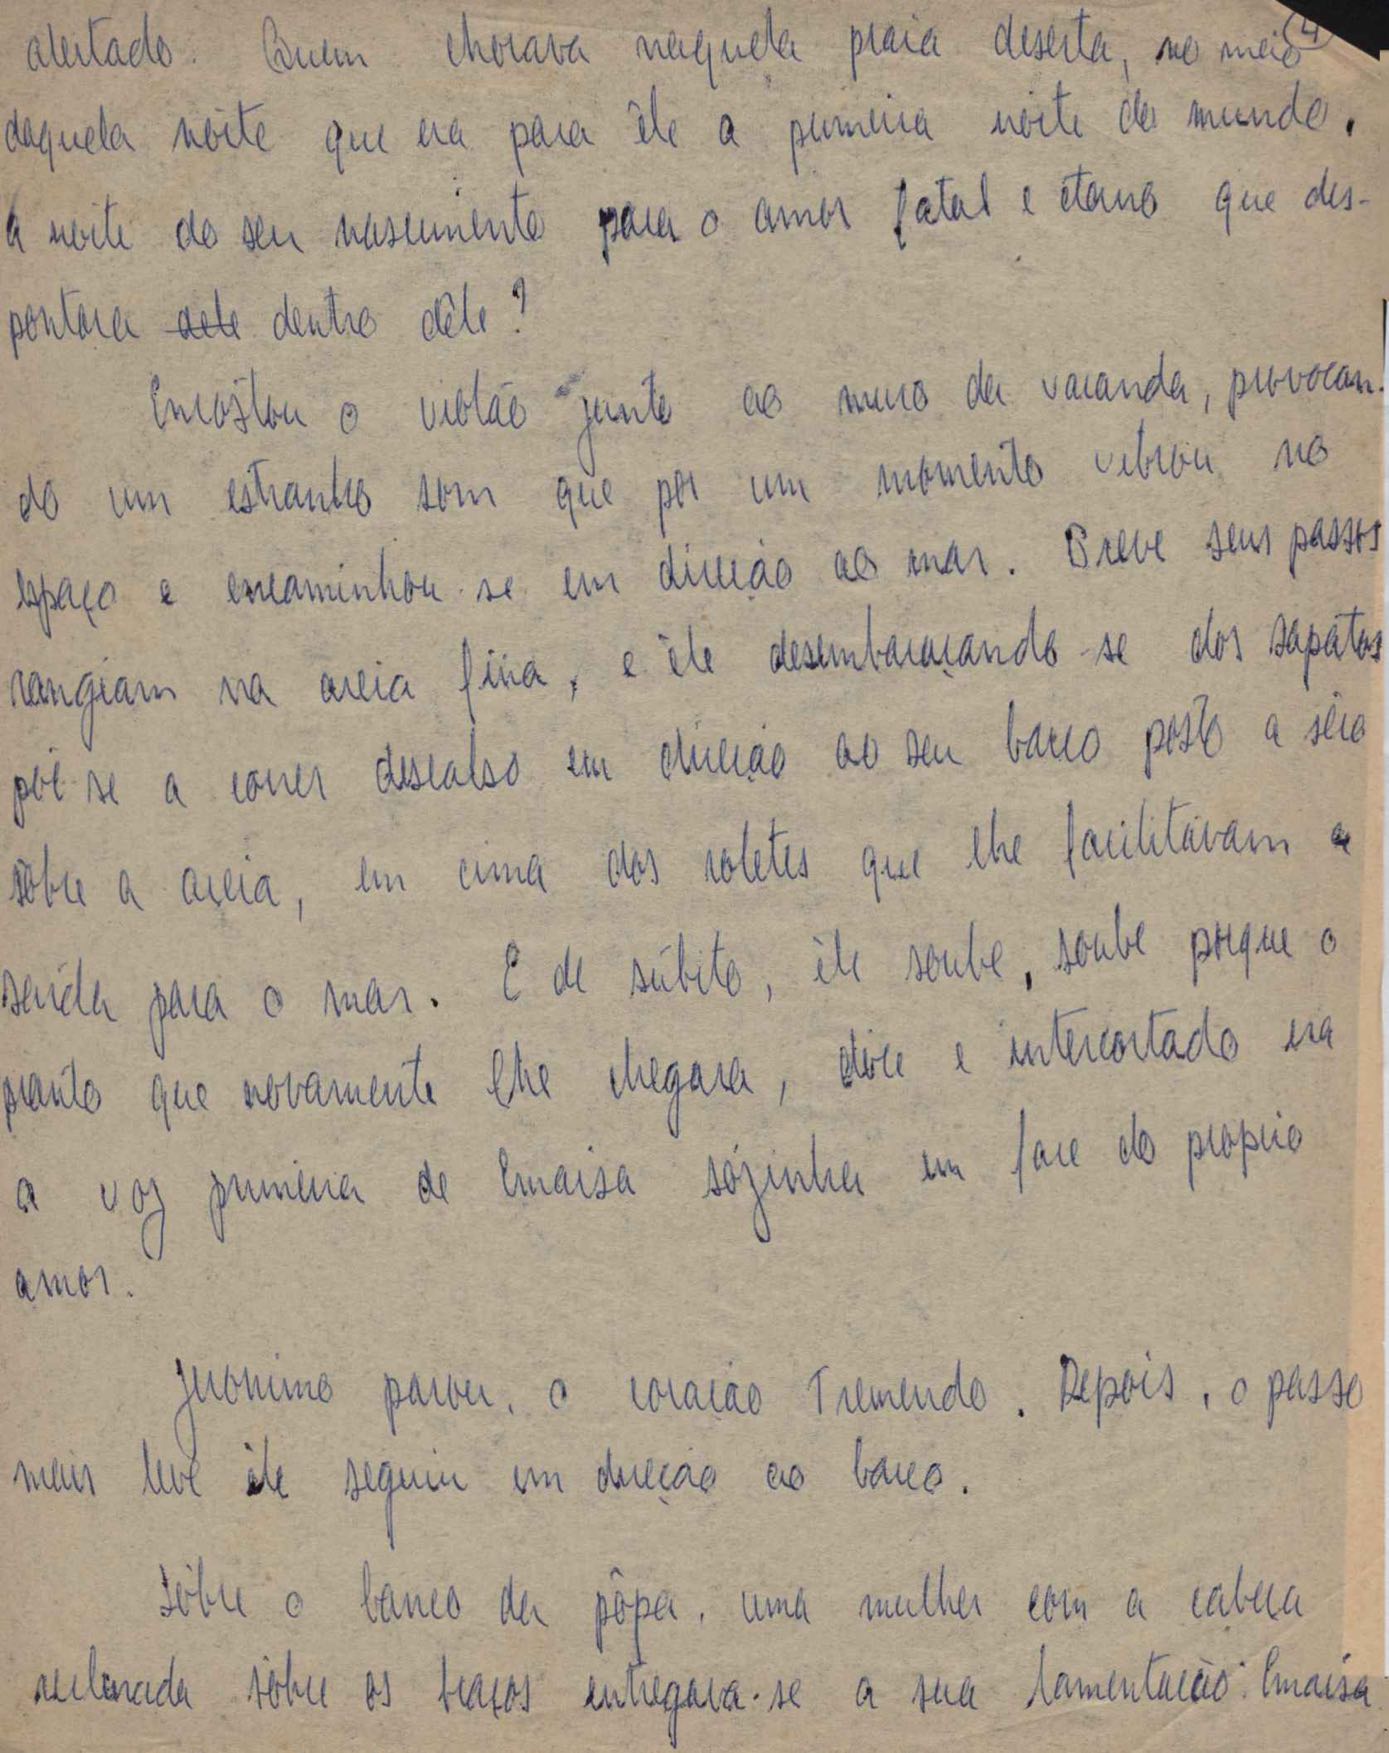 4
alertado. Quem chorava naquela praia deserta, no meio
daquela noite que era para êle a primeira noite do mundo,
a noite do seu nascimento para o amor fatal e eterno que des-
pontara dele dentro dêle?
Encostou o violão junto ao muro da varanda, provocan-
do um estranho som que por um momento vibrou no
espaço e encaminhou-se em direção ao mar. Breve seus passos
rangiam na areia fina, e êle desembaraçando-se dos sapatos
pôi-se a correr descalso em direção ao seu barco posto a sêco
sôbre a areia, em cima dos roletes que lhe facilitavam a
saída para o mar. E de súbito, êle soube, soube porque o
pranto que novamente lhe chegara, dôce e intercortado era
a voz primeira de Emaisa sózinha em face do proprio
amor.
Jeronimo parou, o coração tremendo. Depois, o passo
mais leve êle seguiu em direção ao barco.
Sôbre o banco da pôpa, uma mulher com a cabeça
reclinada sôbre os braços entregava-se a sua lamentação: Emaisa